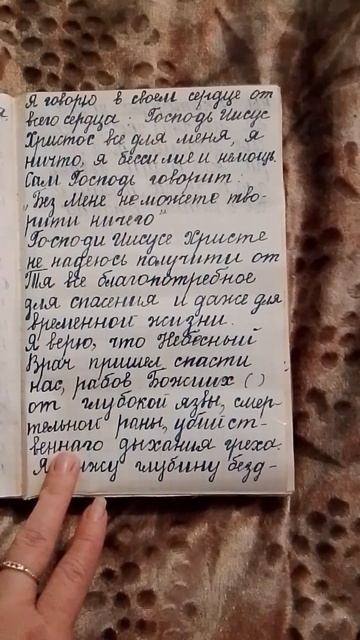 Я говорю в своем сердце от
всего сердца: Господь Иисус
Христос все для меня, я
ничто, я бессилие и немощь.
Сам Господь говорит:
„Без Мене не можете тво-
рити ничего"
Господи Иисусе Христе
не надеюсь получити от
Тя все благопотребное
для спасения и даже для
временной жизни.
Я верю, что Небесный
Врач пришел спасти
нас, рабов Божиих ( )
от глубокой язвы, смер-
тельной раны, убийст-
веннаго дыхания греха.
Я глубину безд-